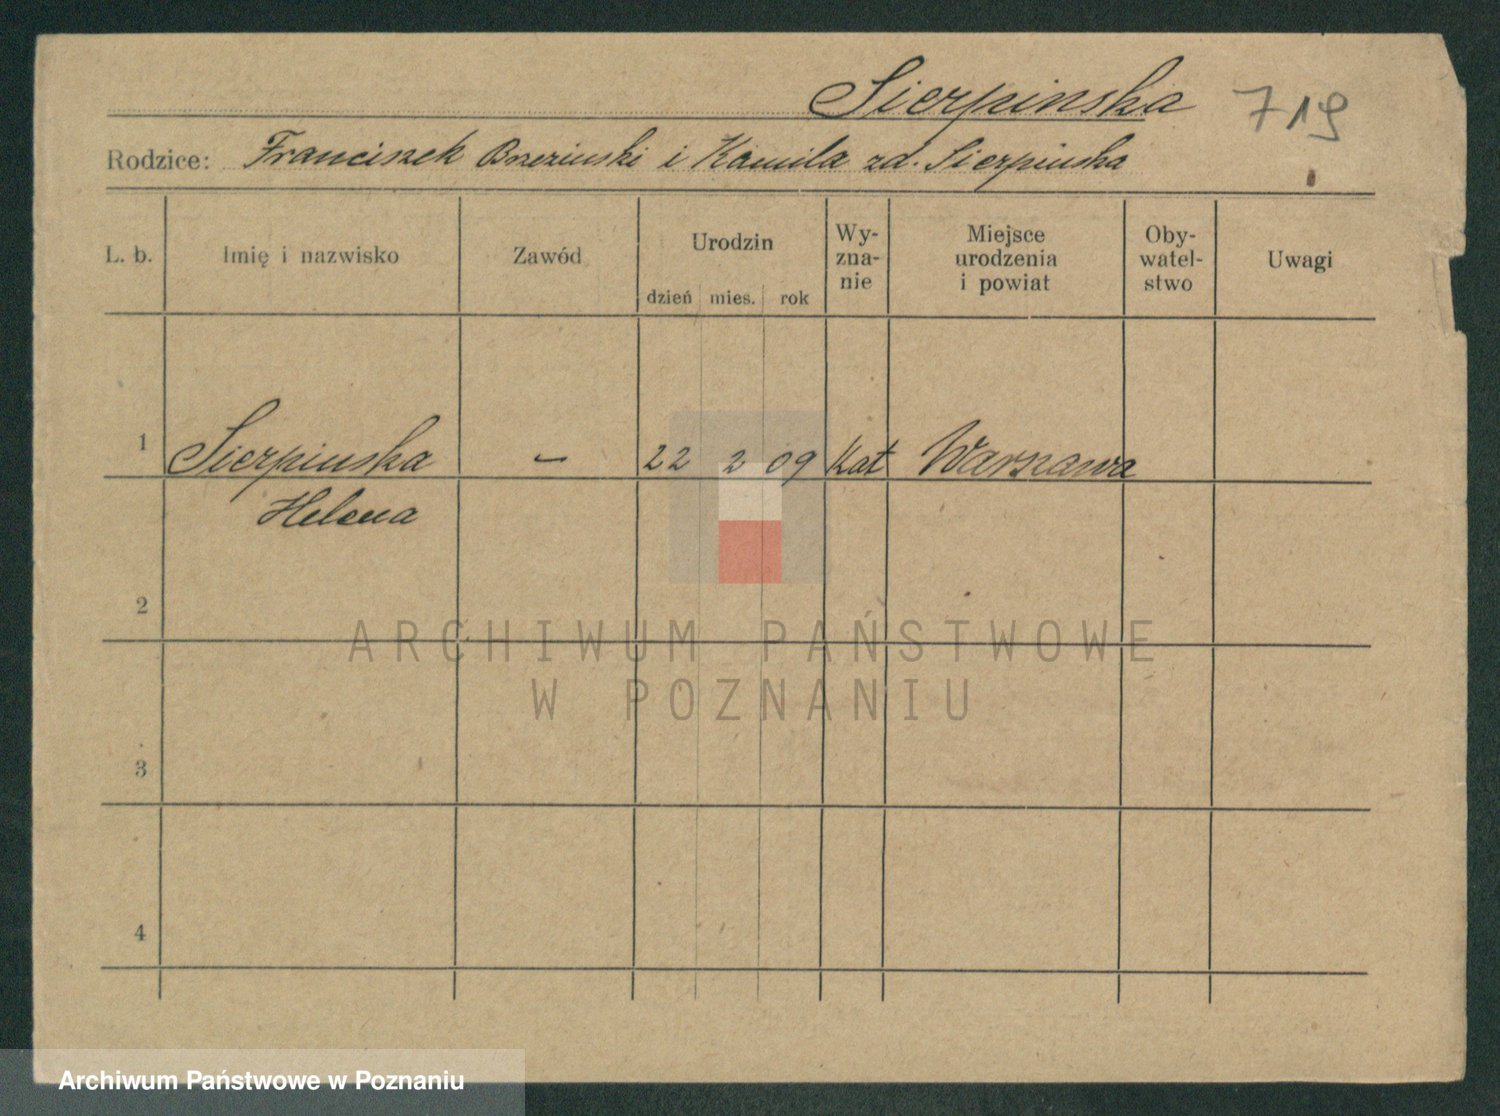 Sierpinska 719
Rodzice: Franciszek Brzezinski i Kamila zd. Sierpinska
L. b. Imię i nazwisko Zawód Urodzin dzień mies. rok Wy-zna-nie Miejsce urodzenia i powiat Oby-watel-stwo Uwagi
1 Sierpinska – 22 2 09 Kat Warszawa
Helena
2
ARCHIWUM PAŃSTWOWE
W POZNANIU
3
4
Archiwum Państwowe w Poznaniu